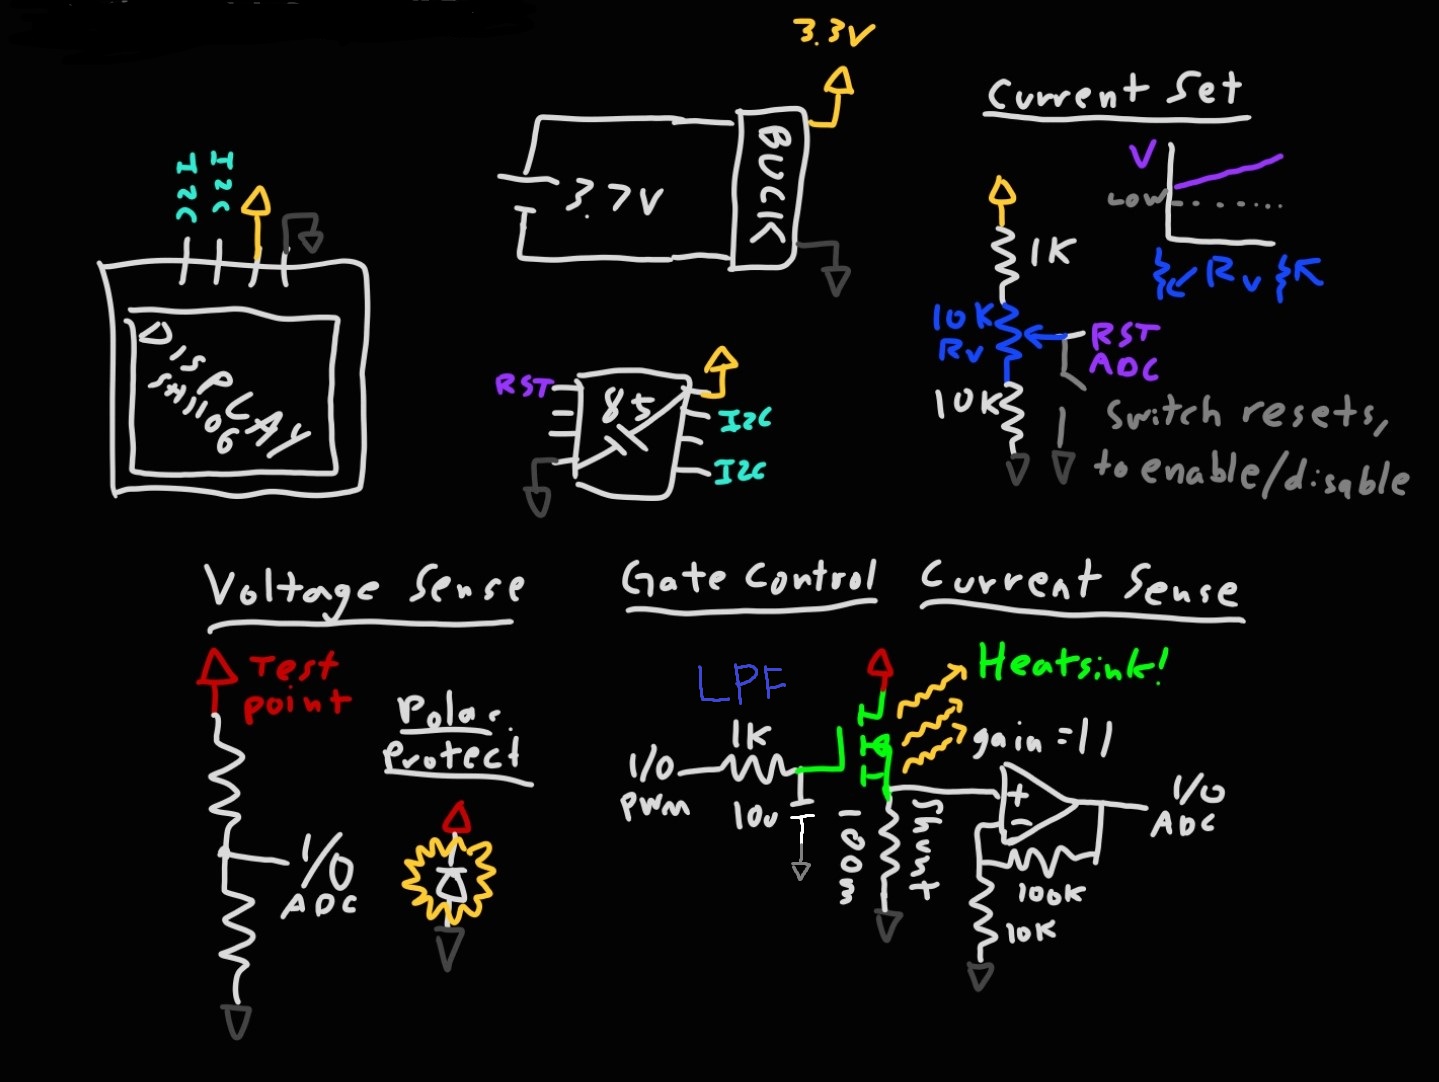 3.3V
BUCK
3.7V
I2C
I2C
DISPLAY
SH1106
RST
85
I2C
I2C
Current Set
V
LOW
Rv
K
1K
10K
Rv
RST
ADC
10K
Switch resets,
to enable/disable
Voltage Sense
Test
point
I/O
ADC
Polar.
Protect
Gate Control
LPF
1K
I/O
PWM
10u
Current Sense
Heatsink!
gain = 11
100m
Shunt
+
-
I/O
ADC
100K
10K